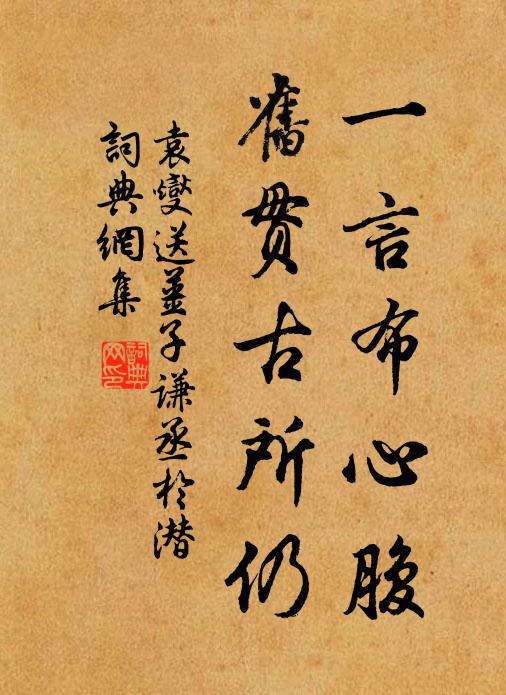 一言布心腹
舊贯古所仍
袁燮送薑子谦丞於潜
詞典網集
詞典網印